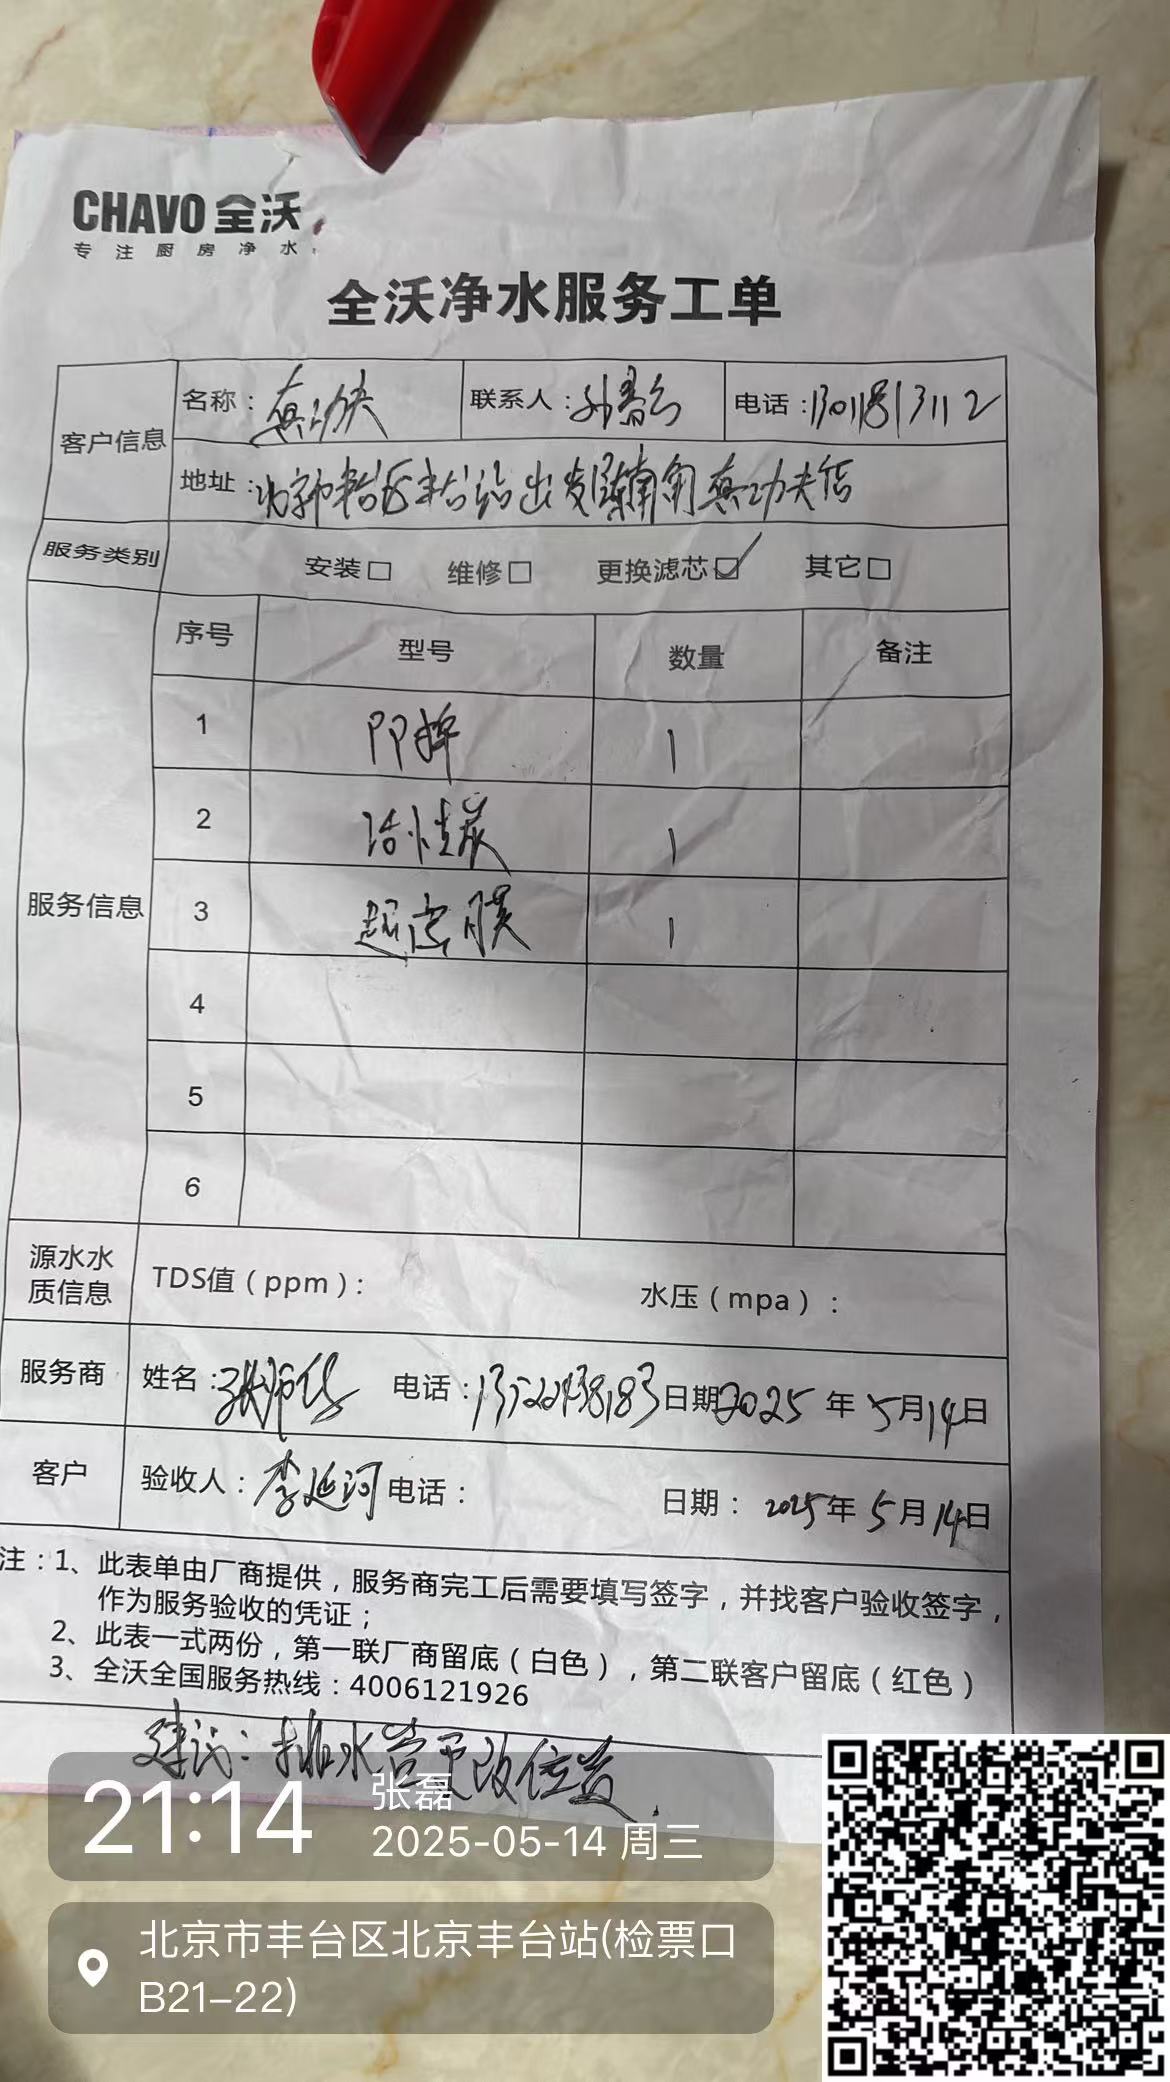 CHAVO 全沃
专注厨房净水
全沃净水服务工单
客户信息 名称：真功夫 联系人：孙春云 电话：13011813112
地址：北京市丰台区丰台站出发层东南角真功夫店
服务类别 安装□ 维修□ 更换滤芯☑ 其它□
服务信息 序号 型号 数量 备注
1 PP棉 1
2 活性炭 1
3 超滤膜 1
4
5
6
源水水质信息 TDS值（ppm）： 水压（mpa）：
服务商 姓名： 电话： 日期2025年5月14日
客户 验收人：李延河 电话： 日期：2025年5月14日
注：1、此表单由厂商提供，服务商完工后需要填写签字，并找客户验收签字，
作为服务验收的凭证；
2、此表一式两份，第一联厂商留底（白色），第二联客户留底（红色）
3、全沃全国服务热线：4006121926
建议：排水管更改位置.
21:14 张磊
2025-05-14 周三
北京市丰台区北京丰台站(检票口
B21-22)